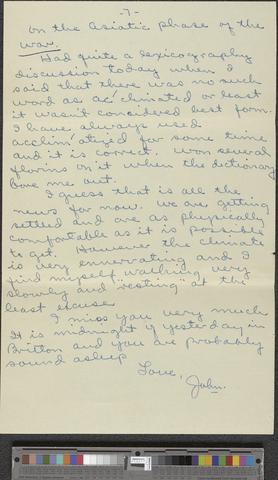 -7-
on the Asiatic phase of the
war.
Had quite a lexicography
discussion today when I
said that there was no such
word as acclimated or least
it wasn't considered best form.
I have always used
acclimatized for some time
and it is correct. Won several
florins on it when the dictionary
bore me out.
I guess that is all the
news for now. We are getting
settled and are as physically
comfortable as it is possible
to get. However the climate
is very ennervating and I
find myself walking very
slowly and "resting" at the
least excuse.
I miss you very much.
It is midnight of yesterday in
Britton and you are probably
sound asleep.
Love,
John.